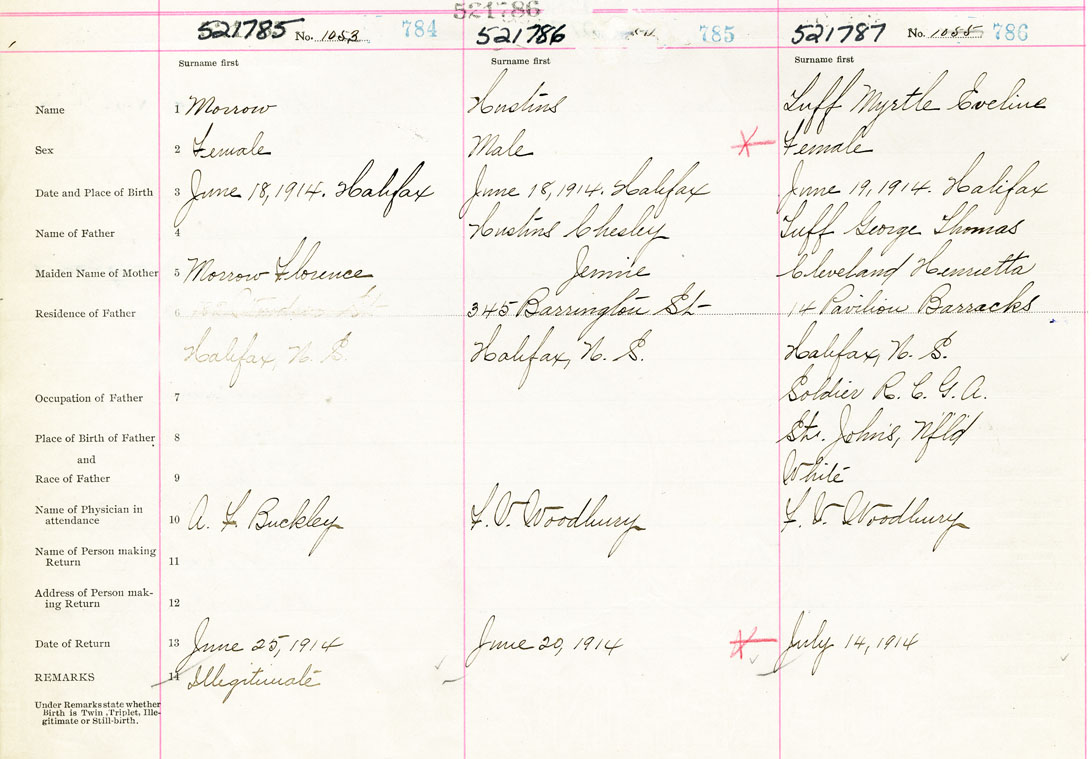 521786
521785 No. 1053 784 521786 785 521787 No. 1055 786
Surname first Surname first Surname first
Name 1 Morrow Hustins Luff Myrtle Eveline
Sex 2 Female Male Female
Date and Place of Birth 3 June 18, 1914. Halifax June 18, 1914. Halifax June 19, 1914. Halifax
Name of Father 4 Hustins Chesley Luff George Thomas
Maiden Name of Mother 5 Morrow Florence Jennie Cleveland Henrietta
Residence of Father 6 St 345 Barrington St 14 Pavilion Barracks
Halifax, N. S. Halifax, N. S. Halifax, N. S.
Occupation of Father 7 Soldier R. C. G. A.
Place of Birth of Father 8 St. John's, Nfld
and
Race of Father 9 White
Name of Physician in
attendance 10 A. F. Buckley F. V. Woodbury F. V. Woodbury
Name of Person making
Return 11
Address of Person mak-
ing Return 12
Date of Return 13 June 25, 1914 June 20, 1914 July 14, 1914
REMARKS 14 Illegitimate
Under Remarks state whether
Birth is Twin, Triplet, Ille-
gitimate or Still-birth.